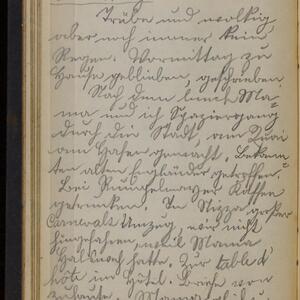 Trübe und wolkig
aber noch immer kein
Regen. Vormittag zu
Hause geblieben, geschrieben
Nach dem lunch Ma=
ma und ich Spaziergang
durch die Stadt, am Quai
am Hafen gemacht. Bekann=
ten alten Engländer getroffen.
Bei Rumpelmayer Kaffee
getrunken. In Nizza großer
Carnevals Umzug, wir nicht
hingefahren, weil Mama
Halsweh hatte. Zur table d'
hôte im Hôtel. Briefe von
zuhause. Mama